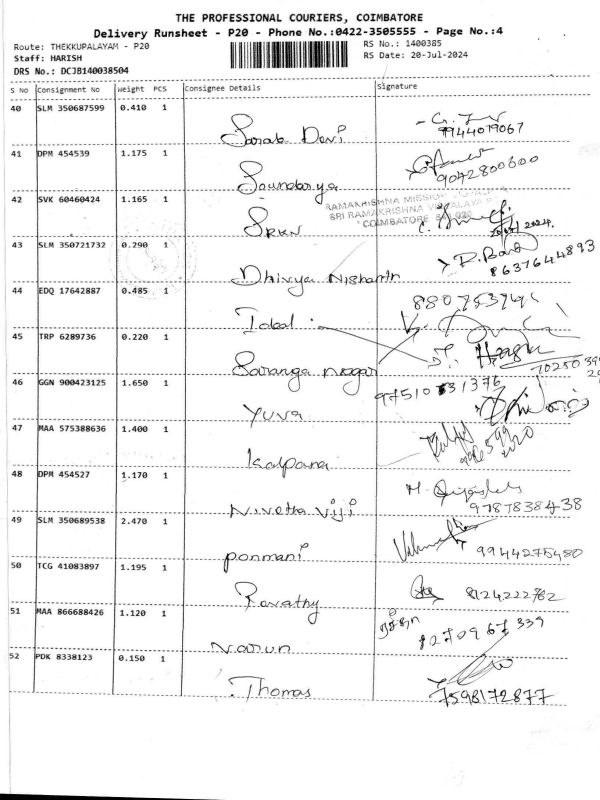 THE PROFESSIONAL COURIERS, COIMBATORE
Delivery Runsheet - P20 - Phone No.:0422-3505555 - Page No.:4
Route: THEKKUPALAYAM - P20
RS No.: 1400385
Staff: HARISH
RS Date: 20-Jul-2024
DRS No.: DCJB140038504
S No Consignment No Weight PCS Consignee Details Signature
40 SLM 350687599 0.410 1
Sarab Devi 9944079067
41 DPM 454539 1.175 1
Soundarya 9042800600
42 SVK 60460424 1.165 1
RAMAKRISHNA MISSION
SRI RAMAKRISHNA VIDYALAYA P
COIMBATORE 641 020
SRKN
43 SLM 350721732 0.290 1
R. Bard
Dhivya Nishanth 8637644893
44 EDQ 17642887 0.485 1
Ideal
45 TRP 6289736 0.220 1
Saranga nagar
46 GGN 900423125 1.650 1
Yuva
47 MAA 575388636 1.400 1
Kalpana
48 DPM 454527 1.170 1
Nivetha Viji 9787838438
49 SLM 350689538 2.470 1
ponmani 9944275480
50 TCG 41083897 1.195 1
Revathy 8124222762
51 MAA 866688426 1.120 1
8270967339
Varun
52 PDK 8338123 0.150 1
Thomas 7598172877